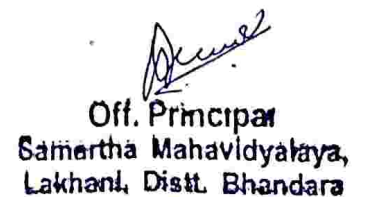 Off. Principal
Samartha Mahavidyalaya,
Lakhani, Distt. Bhandara